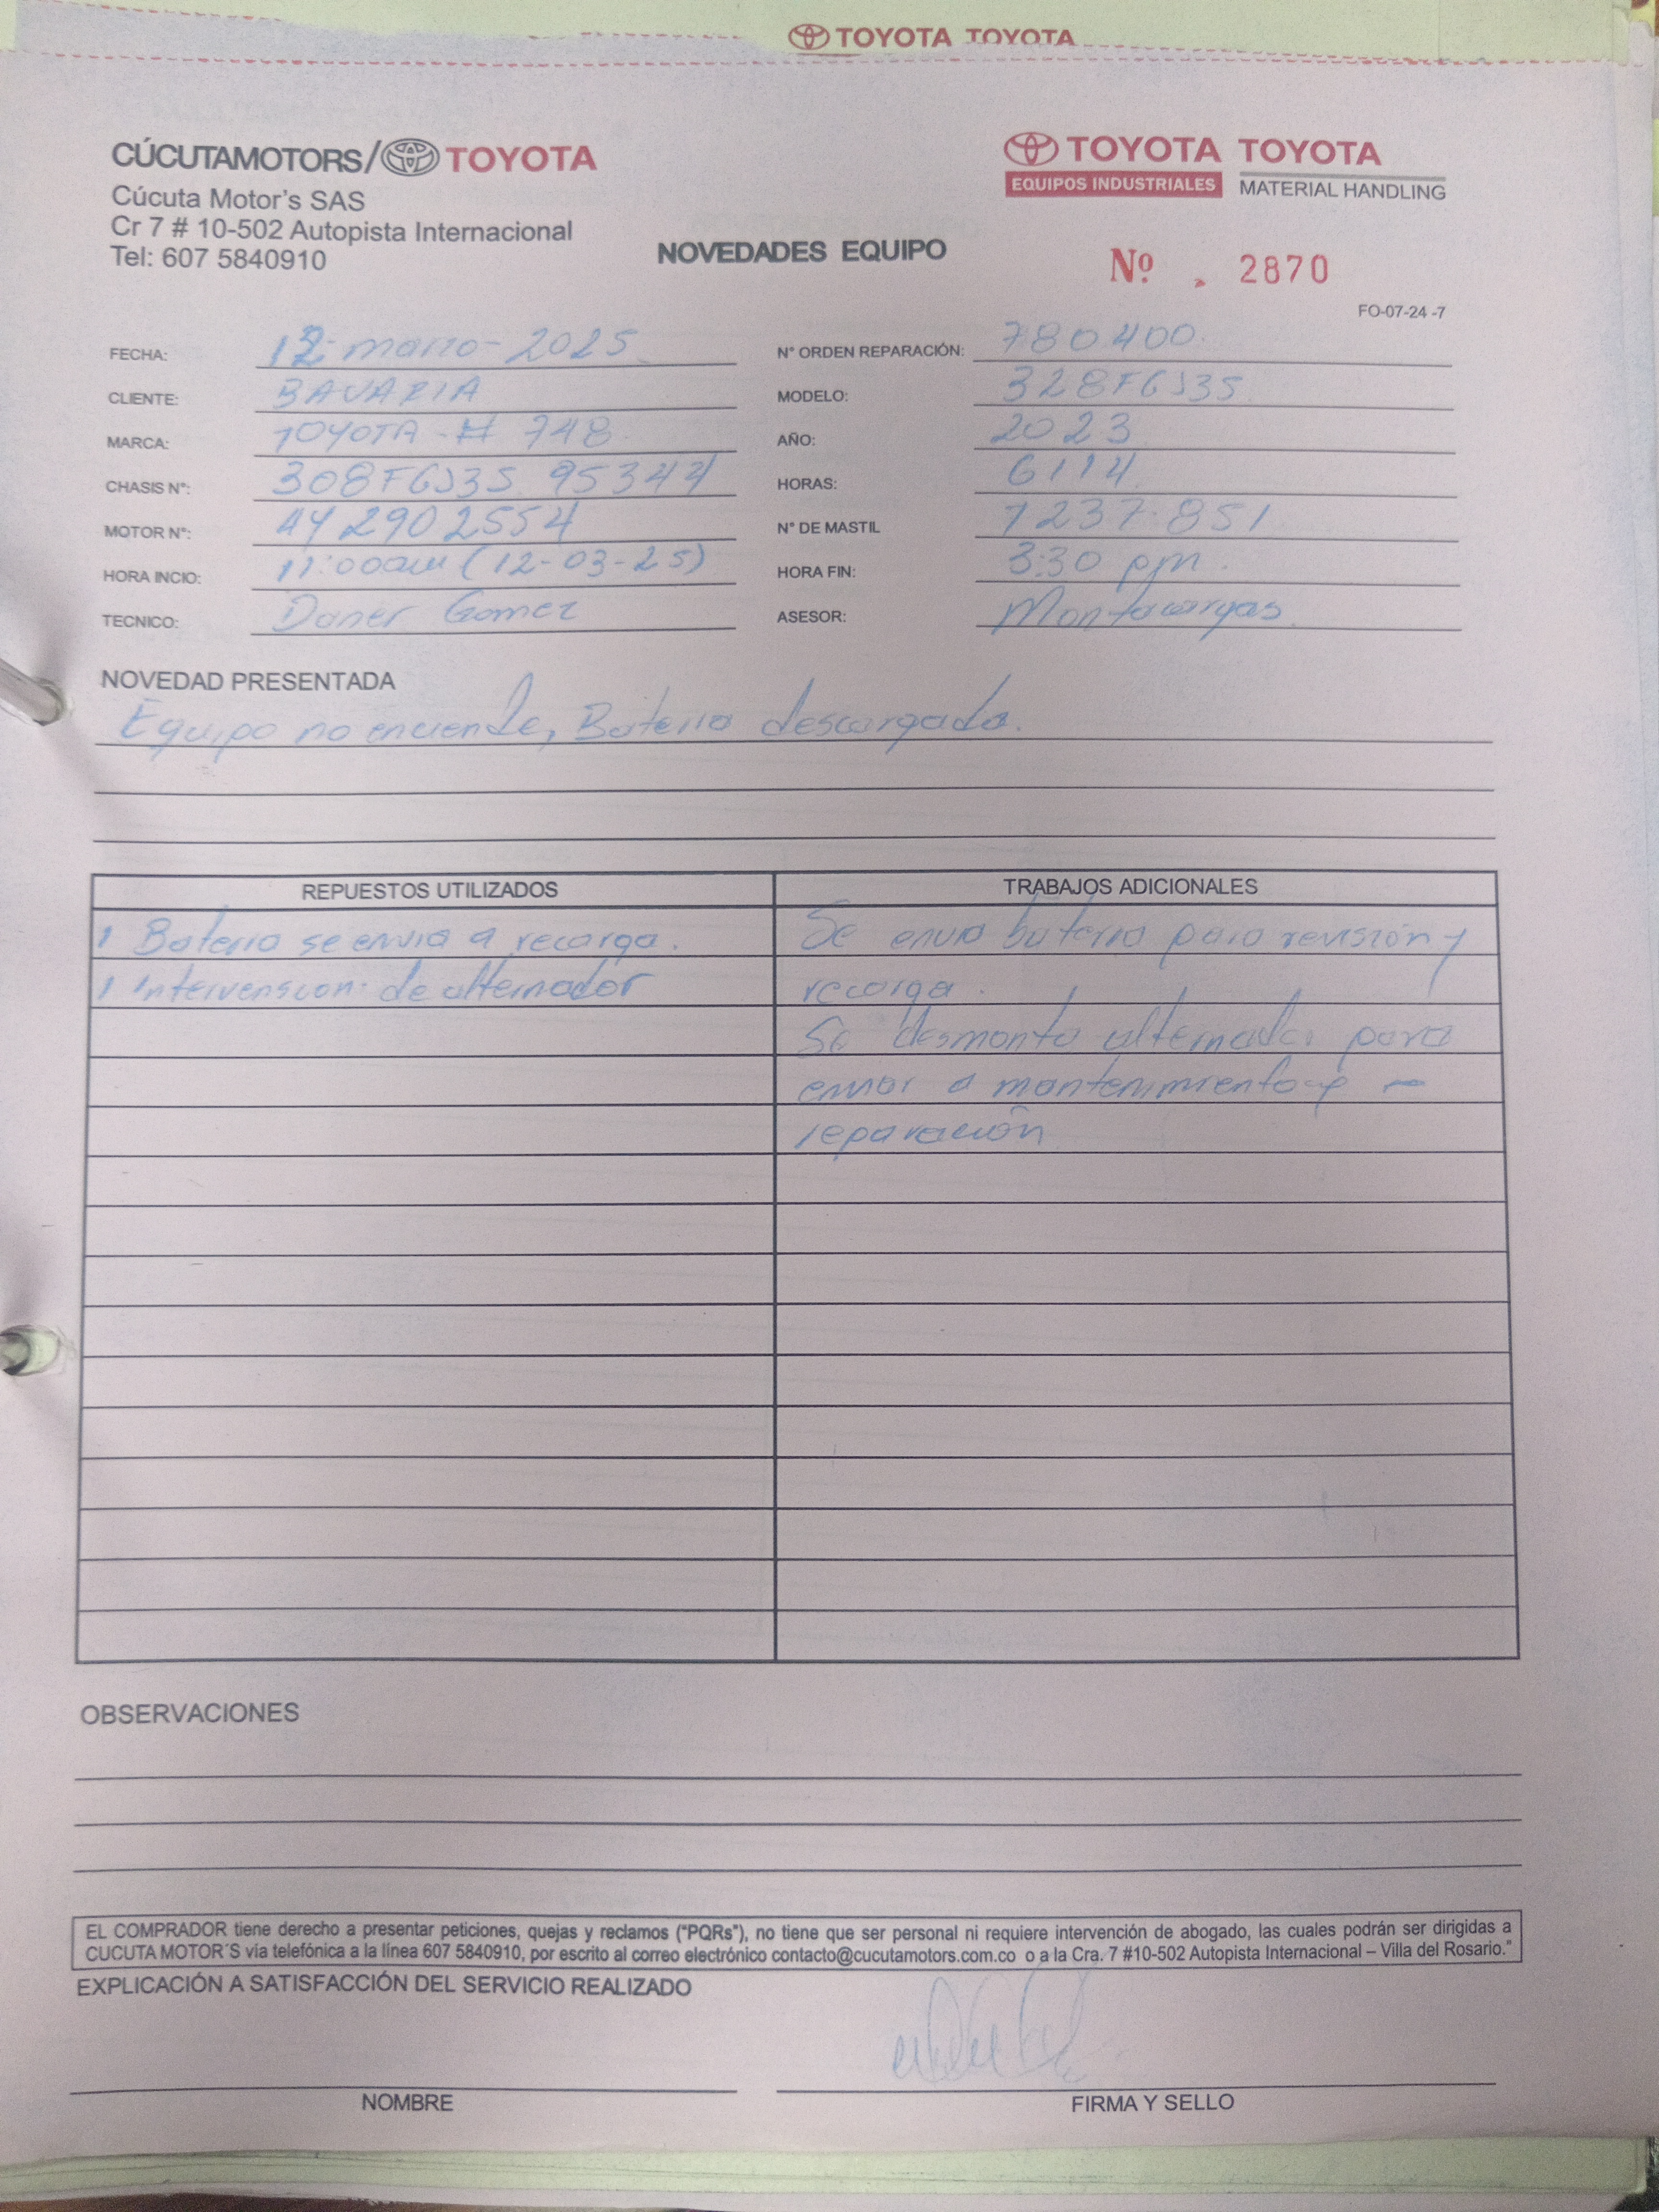 TOYOTA TOYOTA
CÚCUTAMOTORS/ TOYOTA
TOYOTA TOYOTA
EQUIPOS INDUSTRIALES MATERIAL HANDLING
Cúcuta Motor's SAS
Cr 7 # 10-502 Autopista Internacional
Tel: 607 5840910
NOVEDADES EQUIPO
Nº 2870
FO-07-24 -7
FECHA: 12-marzo-2025 N° ORDEN REPARACIÓN: 780400
CLIENTE: BAVARIA MODELO: 328FGJ35
MARCA: TOYOTA - # 748 AÑO: 2023
CHASIS N°: 308FGJ35 95344 HORAS: 6114
MOTOR N°: 442902554 N° DE MASTIL 7237851
HORA INCIO: 11:00am (12-03-25) HORA FIN: 3:30 pm.
TECNICO: Daner Gomez ASESOR: Montacargas
NOVEDAD PRESENTADA
Equipo no enciende, Bateria descargada.
REPUESTOS UTILIZADOS TRABAJOS ADICIONALES
1 Bateria se envia a recarga. Se envia bateria para revisión y
1 intervension de alternador recarga.
Se desmonta alternador para
enviar a mantenimiento y -
reparación
OBSERVACIONES
EL COMPRADOR tiene derecho a presentar peticiones, quejas y reclamos ("PQRs"), no tiene que ser personal ni requiere intervención de abogado, las cuales podrán ser dirigidas a
CUCUTA MOTOR´S vía telefónica a la línea 607 5840910, por escrito al correo electrónico contacto@cucutamotors.com.co o a la Cra. 7 #10-502 Autopista Internacional – Villa del Rosario."
EXPLICACIÓN A SATISFACCIÓN DEL SERVICIO REALIZADO
NOMBRE FIRMA Y SELLO